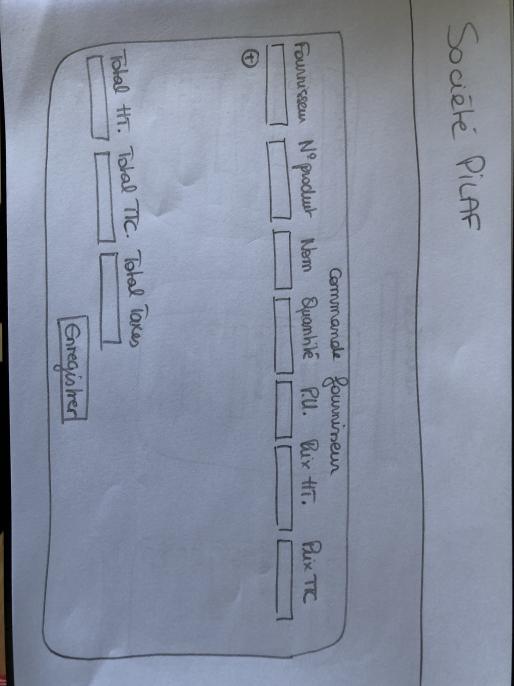 Société PiLAF
Commande fournisseur
Fournisseur N° product Nom Quantité P.U. Prix HT. Prix TTC
+
Total HT. Total TTC. Total Taxes
Enregistrer